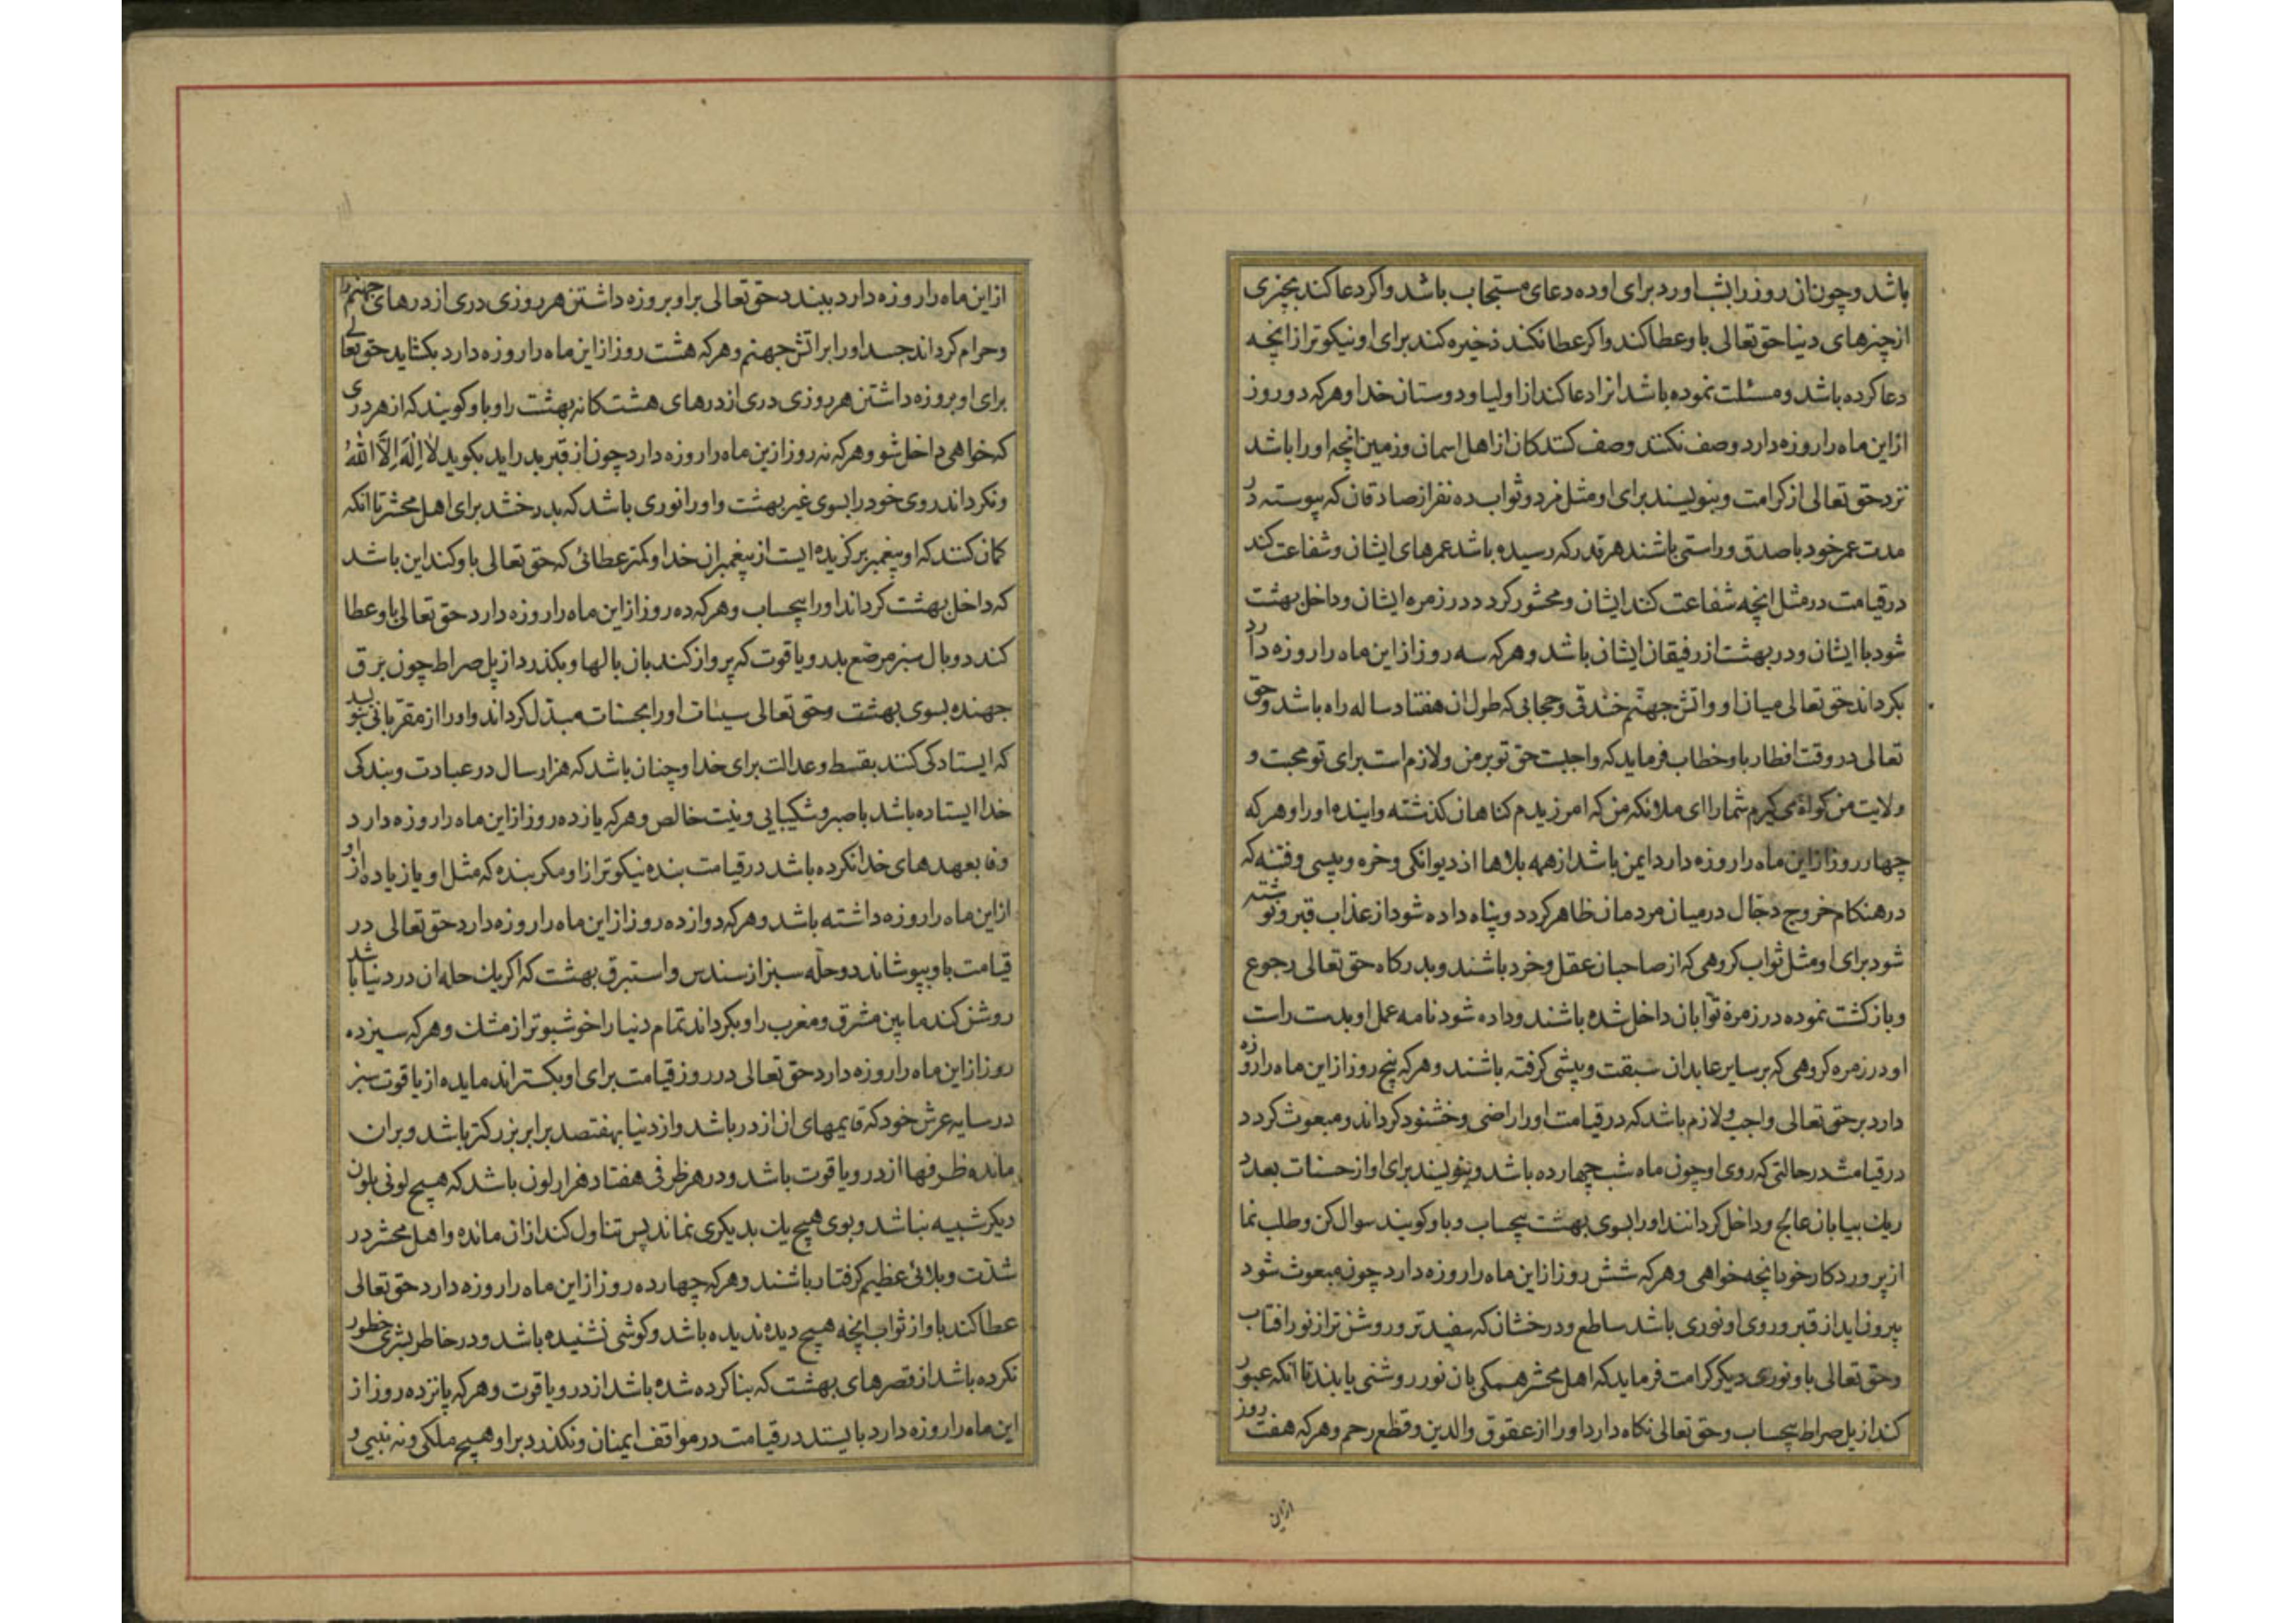 باشد و چون ان روز را بشب اورد برای او ده دعای مستجاب باشد و اکر دعا کند بچیزی
از چیزهای دنیا حق تعالی باو عطا کند و اکر عطا نکند ذخیره کند برای او نیکوتر از انچه
دعا کرده باشد و مسئلت نموده باشد انرا دعا کند از اولیا و دوستان خدا و هر که دو روز
از این ماه را روزه دارد وصف نکنند وصف کنندکان از اهل اسمان و زمین انچه او را باشد
نزد حق تعالی از کرامت و بنویسند برای او مثل مزد و ثواب ده نفر از صادقان که پیوسته در
مدت عمر خود با صدق و راستی باشند هر قدر که رسیده باشد عمرهای ایشان و شفاعت کند
در قیامت در مثل انچه شفاعت کنند ایشان و محشور کردد در زمره ایشان و داخل بهشت
شود با ایشان و در بهشت از رفیقان ایشان باشد و هر که سه روز از این ماه را روزه دارد
بکرداند حق تعالی میان او و اتش جهنم خندقی و حجابی که طول ان هفتاد ساله راه باشد و حق
تعالی در وقت افطار باو خطاب فرماید که واجبست حق تو بر من و لازم است برای تو محبت و
ولایت من کواه می کیرم شما را ای ملائکه من که امرزیدم کناهان کذشته و اینده او را و هر که
چهار روز از این ماه را روزه دارد ایمن باشد از همه بلاها از دیوانکی و خره و پیسی و فتنه که
در هنکام خروج دجال در میان مردمان ظاهر کردد و پناه داده شود از عذاب قبر و نوشته
شود برای او مثل ثواب کروهی که از صاحبان عقل و خرد باشند و بدرکاه حق تعالی رجوع
و بازکشت نموده در زمره توابان داخل شده باشند و داده شود نامه عمل او بدست راست
او در زمره کروهی که بر سایر عابدان سبقت و پیشی کرفته باشند و هر که پنج روز از این ماه را روزه
دارد بر حق تعالی واجب و لازم باشد که در قیامت او را راضی و خشنود کرداند و مبعوث کردد
در قیامت در حالتی که روی او چون ماه شب چهارده باشد و بنویسند برای او از حسنات بعدد
ریك بیابان عالج و داخل کردانند او را بسوی بهشت بیحساب و باو کویند سوال کن و طلب نما
از پروردکار خود انچه خواهی و هر که شش روز از این ماه را روزه دارد چون مبعوث شود
بیرون اید از قبر و روی او نوری باشد ساطع و درخشان که سفیدتر و روشن تر از نور افتاب
و حق تعالی باو نوری دیکر کرامت فرماید که اهل محشر همکی بان نور روشنی یابند تا انکه عبور
کند از پل صراط بیحساب و حق تعالی نکاه دارد او را از عقوق والدین و قطع رحم و هر که هفت روز
از این
از این ماه را روزه دارد ببندد حق تعالی بر او بروزه داشتن هر روزی دری از درهای جهنم را
و حرام کرداند جسد او را بر اتش جهنم و هر که هشت روز از این ماه را روزه دارد بکشاید حق تعالی
برای او بروزه داشتن هر روزی دری از درهای هشتکانه بهشت را و باو کویند که از هر دری
که خواهی داخل شو و هر که نه روز ازین ماه را روزه دارد چون از قبر بدر اید بکوید لَا اِلٰهَ اِلَّا اللّٰهُ
و نکرداند روی خود را بسوی غیر بهشت و او را نوری باشد که بدرخشد برای اهل محشر تا انکه
کمان کنند که او پیغمبر برکزیده ایست از پیغمبران خدا و کمتر عطائی که حق تعالی باو کند این باشد
که داخل بهشت کرداند او را بیحساب و هر که ده روز از این ماه را روزه دارد حق تعالی باو عطا
کند دو بال سبز مرصع بدر و یاقوت که پرواز کند بان بالها و بکذرد از پل صراط چون برق
جهنده بسوی بهشت و حق تعالی سیئات او را بحسنات مبدل کرداند و او را از مقربانی بنویسد
که ایستادکی کنند بقسط و عدالت برای خدا و چنان باشد که هزار سال در عبادت و بندکی
خدا ایستاده باشد با صبر و شکیبایی و نیت خالص و هر که یازده روز از این ماه را روزه دارد
وفا بعهدهای خدا نکرده باشد در قیامت بنده نیکوتر از او مکر بنده که مثل او یا زیاده از او
از این ماه را روزه داشته باشد و هر که دوازده روز از این ماه را روزه دارد حق تعالی در
قیامت باو بپوشاند دو حله سبز از سندس و استبرق بهشت که اکر یك حله ان در دنیا باشد
روشن کند مابین مشرق و مغرب را و بکرداند تمام دنیا را خوشبوتر از مشك و هر که سیزده
روز از این ماه را روزه دارد حق تعالی در روز قیامت برای او بکستراند مایده از یاقوت سبز
در سایه عرش خود که قایمهای ان از در باشد و از دنیا بهفتصد برابر بزرکتر باشد و بران
مانده ظرفها از در و یاقوت باشد و در هر ظرفی هفتاد هزار لون باشد که هیچ لونی بلون
دیکر شبیه نباشد و بوی هیچ یك بدیکری نماند پس تناول کند از ان مانده و اهل محشر در
شدت و بلائی عظیم کرفتار باشند و هر که چهارده روز از این ماه را روزه دارد حق تعالی
عطا کند باو از ثواب انچه هیچ دیده ندیده باشد و کوشی نشنیده باشد و در خاطر بشری خطور
نکرده باشد از قصرهای بهشت که بنا کرده شده باشد از در و یاقوت و هر که پانزده روز از
این ماه را روزه دارد بایستد در قیامت در مواقف ایمنان و نکذرد بر او هیچ ملکی و نه نبیی و